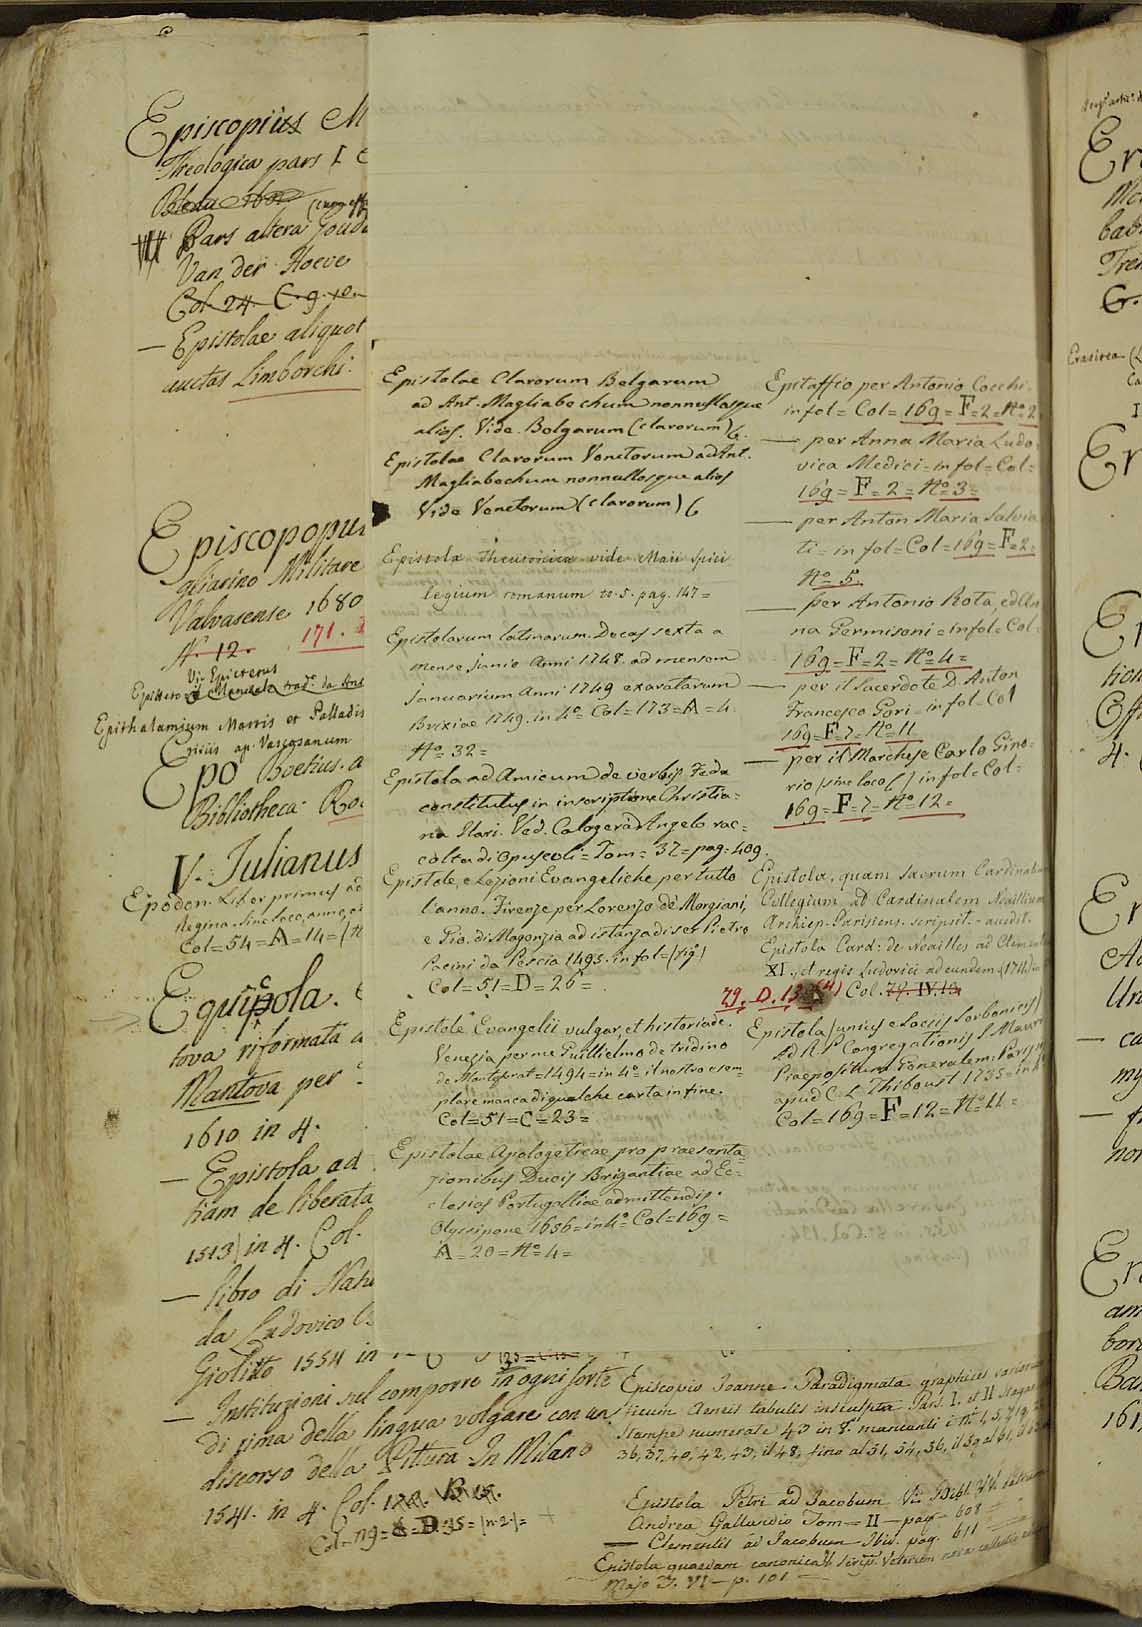 Episcopius M
Theologica pars I
Pars altera Goud
Van der Hoeve
Col. 24. C. 9.
— Epistolae aliquot
auctas Limborchi.
Episcopopu
gliarino Militare
Valvasense 1680
N. 12. 171.
Vi: Epicteros
Epithalamium Martis et Palladis
ap. Vascosanum
Epo Boetius.
Bibliotheca Ro
V. Julianus
Epòdon. Liber primus ad
Regina. Sine loco, anno, e
Col = 54 = A = 14 =
Equicola.
tova riformata
Mantova per
1610 in 4.
— Epistola ad
tiam de liberata
1513) in 4. Col.
— libro di Natu
da Ludovico
Giolitto 1554 in
— Instituzioni sul comporre in ogni sorte
di rima della lingua volgare con un
discorso della Pittura In Milano
1541. in 4. Col.
Col = 119 = D = 35 = (n. 2.) =
Epistolae Clarorum Belgarum
ad Ant. Magliabechum nonnullosque
alios. Vide. Belgarum (clarorum)
Epistolae Clarorum Venetorum ad Ant.
Magliabechum nonnullosque alios
Vide Venetorum (clarorum)
Epistola Theutonica vide Maii Spici
legium romanum to. 5. pag. 147 =
Epistolarum latinarum. Decas sexta a
mense junio Anni 1748. ad mensem
Januarium Anni 1749 exaratarum
Brixiae 1749. in 4º Col = 173 = A = 4.
Nº 32 =
Epistola ad Amicum de verbis Feda
constitutus in inscriptione Christia=
na Ilari. Ved. Calogerà Angelo rac=
colta di Opuscoli = Tom = 37 = pag = 409.
Epistole, e Lezioni Evangeliche per tutto
l'anno. Firenze per Lorenzo de Morgiani,
e Gio. di Magonzia ad istanza di ser Pietro
Pacini da Pescia 1495. in fol = (fig.)
Col = 51 = D = 26 =
Epistole Evangelii vulgar, et historiade.
Venezia per me Guillielmo de tridino
de Monteferat = 1494 = in 4º il nostro esem=
plare manca di qualche carta in fine.
Col = 51 = C = 23 =
Epistolae Apologeticae pro praesenta=
zionibus Ducis Brigantiae ad Ec=
clesias Portugalliae admittendis.
Olyssipone 1656 = in 4º Col = 169 =
A = 20 = Nº 4 =
Epitaffio per Antonio Cocchi.
in fol = Col = 169 = F = 2 = Nº 2
— per Anna Maria Ludo=
vica Medici = in fol = Col =
169 = F = 2 = Nº 3 =
— per Anton Maria Salvia
ti = in fol = Col = 169 = F = 2 =
Nº 5.
— per Antonio Rota, ed An
na Permisoni = in fol = Col =
169 = F = 2 = Nº 4 =
— per il Sacerdote D. Anton
Francesco Gori = in fol = Col
169 = F = 7 = Nº 11
— per il Marchese Carlo Gino=
rio (sine loco) in fol = Col =
169 = F = 7 = Nº 12 =
Epistola, quam Sacrum Cardinalium
Collegium ad Cardinalem Noaillium
Archiep. Parisiens. scripsit. - accedit.
Epistola Card: de Noailles ad Clementem
XI., et regis Ludovici ad eundem (1714)
29. D. 13 (4) Col. 79. IV. 13.
Epistola (unius e Sociis Sorbonicis)
Ad R. P Congregationis S Mauri
Praepositum Generalem. Parisiis
apud C. L. Thiboust 1735 = in 4
Col = 169 = F = 12 = Nº 11 =
Episcopio Joanne. Paradigmata graphices variorum
ficum Aeneis tabulis insculpta Pars. I. et II
Stampe numerate 43 in f. mancanti
36, 37, 40, 42, 43, il 48, fino al 51, 54, 56, il 59 al 61,
Epistola Petri ad Jacobum Vi: Bibl. VV. Patrum
Andrea Gallandio Tom = II — pag — 608 =
— Clementis ad Jacobum Ibid. pag. 611
Epistola quaedam canonica Vi: Scrip. Veterum nova collectio
Majo T. VI — p. 101 —
Er
Trev
Erasirea
Er
Er
tion
4.
Er
Un
— ca
my
non
Er
am
bor
Ba
161